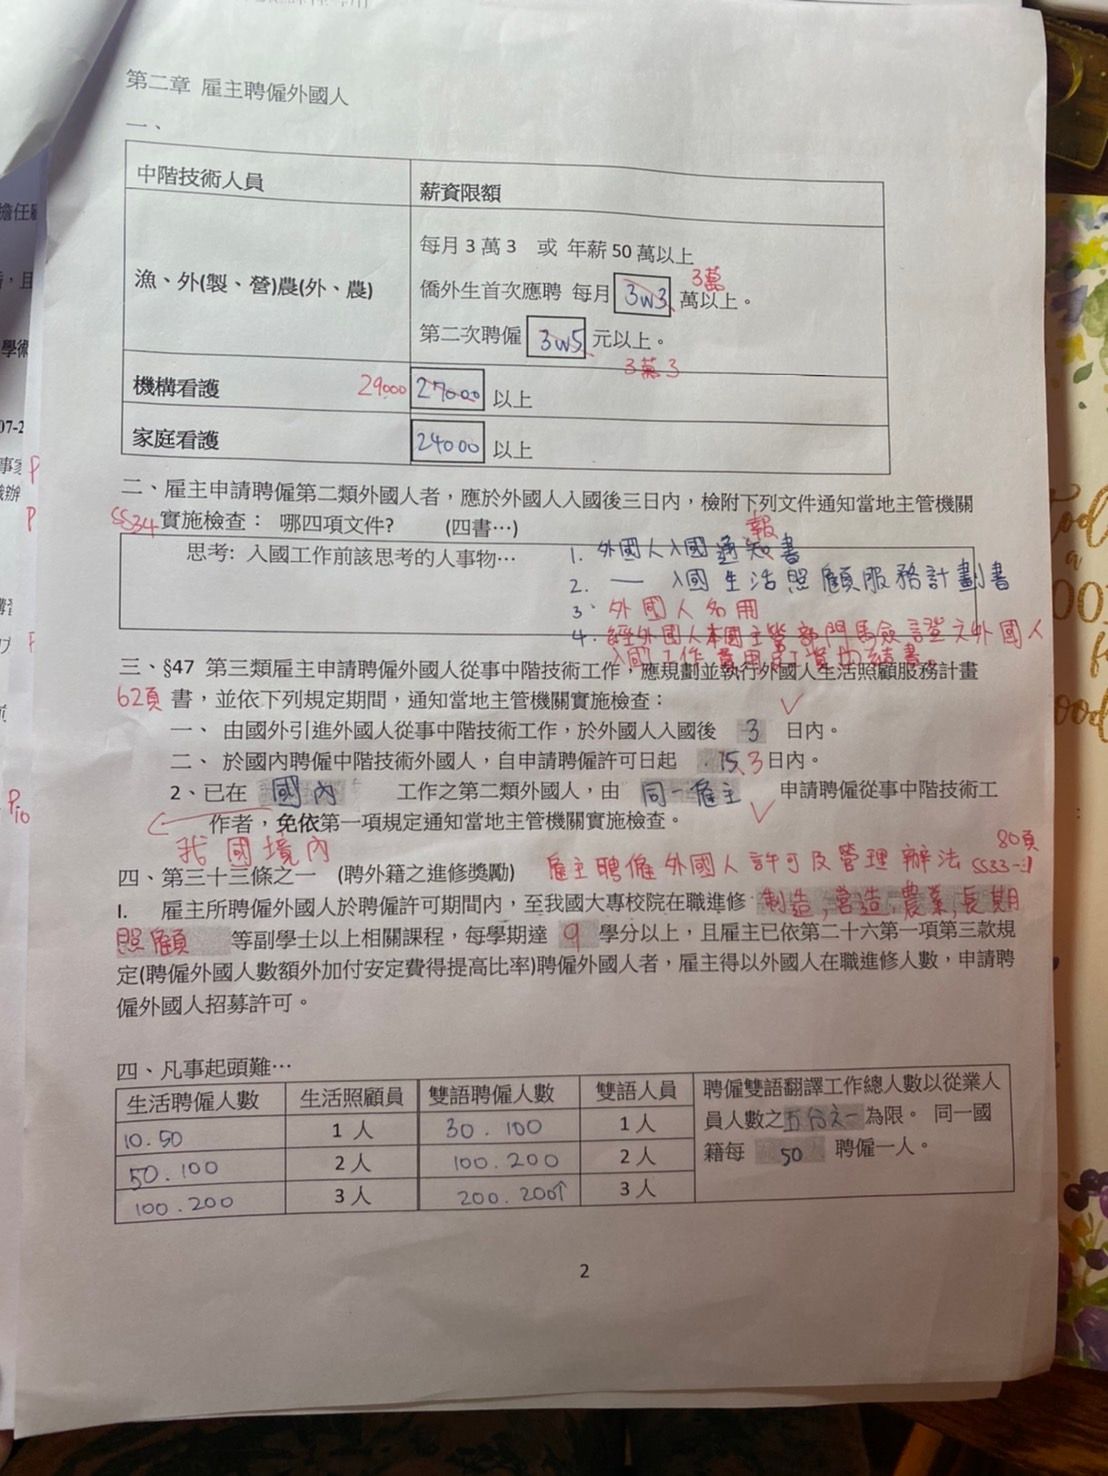 第二章 雇主聘僱外國人
一、
中階技術人員
薪資限額
漁、外(製、營)農(外、農)
每月3萬3 或 年薪50萬以上
3萬
僑外生首次應聘 每月 3w3 萬以上。
第二次聘僱 3w5 元以上。
3萬3
機構看護 29000 27000 以上
家庭看護 24000 以上
二、雇主申請聘僱第二類外國人者，應於外國人入國後三日內，檢附下列文件通知當地主管機關
§§34 實施檢查： 哪四項文件? (四書…) 報
思考: 入國工作前該思考的人事物… 1. 外國人入國通知書
2. — 入國生活照顧服務計劃書
3. 外國人名冊
4. 經外國人本國主管部門驗證之外國人
入國工作費用及工資切結書
三、§47 第三類雇主申請聘僱外國人從事中階技術工作，應規劃並執行外國人生活照顧服務計畫
62頁 書，並依下列規定期間，通知當地主管機關實施檢查：
一、 由國外引進外國人從事中階技術工作，於外國人入國後 3 日內。
二、 於國內聘僱中階技術外國人，自申請聘僱許可日起 15 3 日內。
2、已在 國內 工作之第二類外國人，由 同一雇主 申請聘僱從事中階技術工
作者，免依第一項規定通知當地主管機關實施檢查。
P10
我國境內
80頁
四、第三十三條之一 (聘外籍之進修獎勵) 雇主聘僱外國人許可及管理辦法 §§33-1
I. 雇主所聘僱外國人於聘僱許可期間內，至我國大專校院在職進修 制造,營造,農業,長期
照顧 等副學士以上相關課程，每學期達 9 學分以上，且雇主已依第二十六第一項第三款規
定(聘僱外國人數額外加付安定費得提高比率)聘僱外國人者，雇主得以外國人在職進修人數，申請聘
僱外國人招募許可。
四、凡事起頭難…
生活聘僱人數 生活照顧員 雙語聘僱人數 雙語人員
10.50 1人 30.100 1人
50.100 2人 100.200 2人
100.200 3人 200.200↑ 3人
聘僱雙語翻譯工作總人數以從業人
員人數之五分之一為限。 同一國
籍每 50 聘僱一人。
2